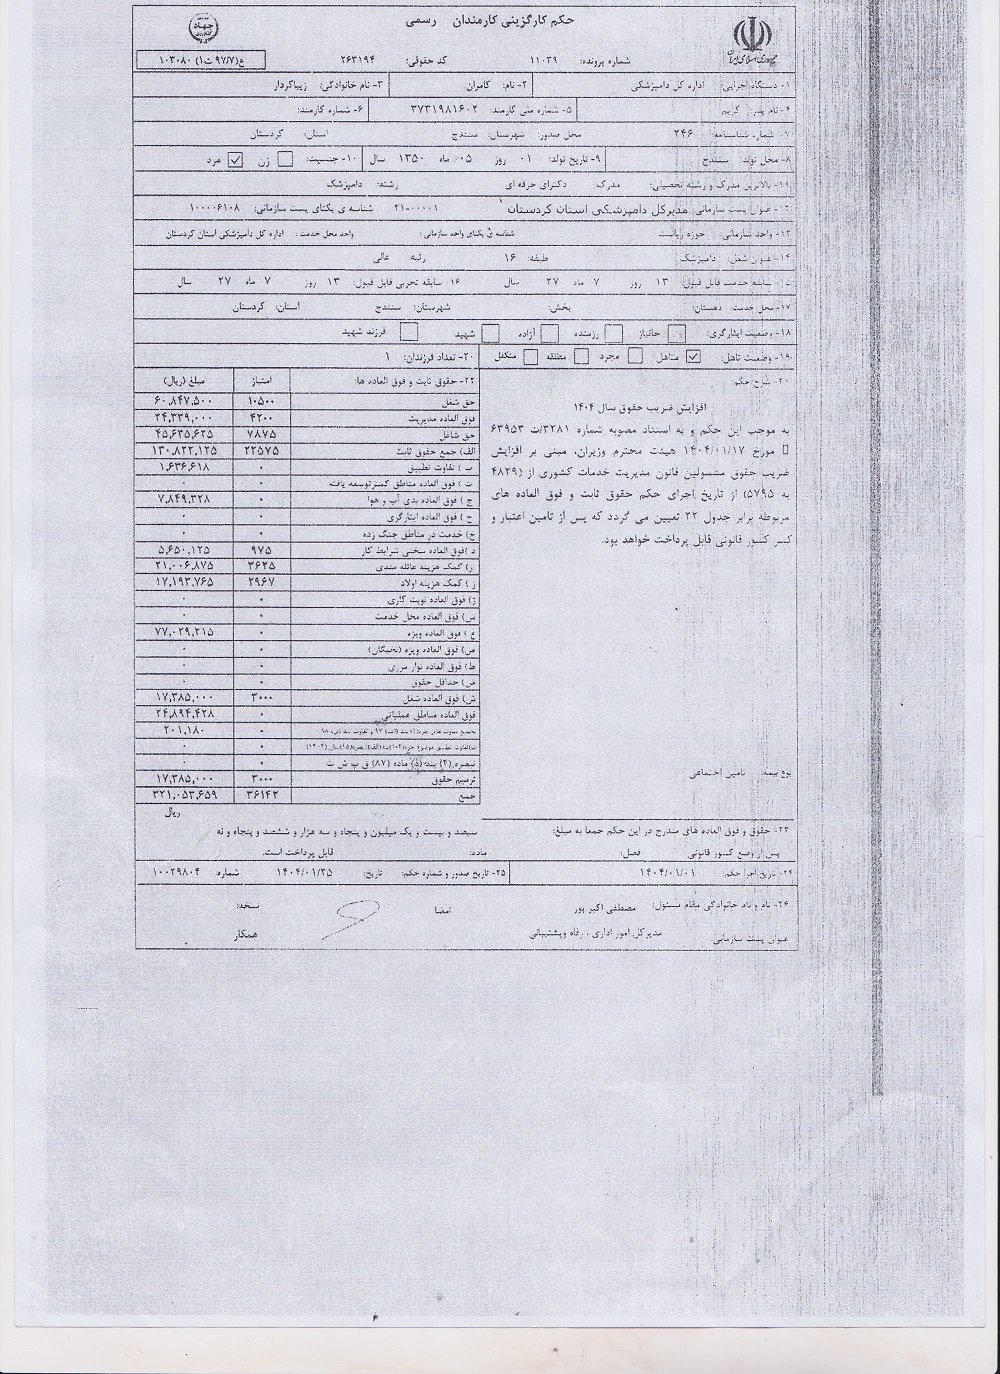 حکم کارگزینی کارمندان رسمی
جمهوری اسلامی ایران
شماره پرونده: ۱۱۰۳۹ کد حقوقی: ۲۶۳۱۹۴ ع(۹۷/۷ ت۱) ۱۰۳۰۸۰
۱- دستگاه اجرایی: اداره کل دامپزشکی ۲- نام: کامران ۳- نام خانوادگی: زیباکردار
۴- نام پدر: کریم ۵- شماره ملی کارمند: ۳۷۳۱۹۸۱۶۰۲ ۶- شماره کارمند:
۷- شماره شناسنامه ۲۴۶ محل صدور: شهرستان: سنندج استان: کردستان
۸- محل تولد سنندج ۹- تاریخ تولد: ۰۱ روز ۰۵ ماه ۱۳۵۰ سال ۱۰- جنسیت: زن مرد
۱۱- بالاترین مدرک و رشته تحصیلی: مدرک دکترای حرفه ای رشته: دامپزشک
۱۲- عنوان پست سازمانی مدیرکل دامپزشکی استان کردستان ۲۱-۰۰۰۰۱ شناسه ی یکتای پست سازمانی: ۱۰۰۰۰۶۱۰۸
۱۳- واحد سازمانی: حوزه ریاست شناسه ی یکتای واحد سازمانی: واحد محل خدمت: اداره کل دامپزشکی استان کردستان
۱۴- عنوان شغل: دامپزشک طبقه: ۱۶ رتبه: عالی
۱۵- سابقه خدمت قابل قبول: ۱۳ روز ۷ ماه ۲۷ سال ۱۶- سابقه تجربی قابل قبول: ۱۳ روز ۷ ماه ۲۷ سال
۱۷- محل خدمت: دهستان: بخش: شهرستان: سنندج استان: کردستان
۱۸- وضعیت ایثارگری: جانباز رزمنده آزاده شهید فرزند شهید
۱۹- وضعیت تاهل: متاهل مجرد مطلقه متکفل ۲۰- تعداد فرزندان: ۱
۲۱- شرح حکم:
افزایش ضریب حقوق سال ۱۴۰۴
به موجب این حکم و به استناد مصوبه شماره ۳۲۸۱/ت ۶۳۹۵۳
مورخ ۱۴۰۴/۰۱/۱۷ هیئت محترم وزیران، مبنی بر افزایش
ضریب حقوق مشمولین قانون مدیریت خدمات کشوری از (۴۸۲۹
به ۵۷۹۵) از تاریخ اجرای حکم حقوق ثابت و فوق العاده های
مربوطه برابر جدول ۲۲ تعیین می گردد که پس از تامین اعتبار و
کسر کسور قانونی قابل پرداخت خواهد بود.
نوع بیمه: تامین اجتماعی
۲۲- حقوق ثابت و فوق العاده ها: امتیاز مبلغ (ریال)
حق شغل ۱۰۵۰۰ ۶۰,۸۴۷,۵۰۰
فوق العاده مدیریت ۴۲۰۰ ۲۴,۳۳۹,۰۰۰
حق شاغل ۷۸۷۵ ۴۵,۶۳۵,۶۲۵
الف) جمع حقوق ثابت ۲۲۵۷۵ ۱۳۰,۸۲۲,۱۲۵
ب) تفاوت تطبیق ۰ ۱,۶۳۶,۶۱۸
ت) فوق العاده مناطق کمتر توسعه یافته ۰ ۰
ج) فوق العاده بدی آب و هوا ۰ ۷,۸۴۹,۳۲۸
ح) فوق العاده ایثارگری ۰ ۰
خ) خدمت در مناطق جنگ زده ۰ ۰
د) فوق العاده سختی شرایط کار ۹۷۵ ۵,۶۵۰,۱۲۵
ر) کمک هزینه عائله مندی ۳۶۲۵ ۲۱,۰۰۶,۸۷۵
ز) کمک هزینه اولاد ۲۹۶۷ ۱۷,۱۹۳,۷۶۵
ژ) فوق العاده نوبت کاری ۰ ۰
س) فوق العاده محل خدمت ۰ ۰
ع) فوق العاده ویژه ۰ ۷۷,۰۲۹,۲۱۵
ص) فوق العاده ویژه (نخبگان) ۰ ۰
ط) فوق العاده نوار مرزی ۰ ۰
ض) حداقل حقوق ۰ ۰
ش) فوق العاده شغل ۳۰۰۰ ۱۷,۳۸۵,۰۰۰
فوق العاده مناطق عملیاتی ۰ ۲۴,۸۹۴,۴۲۸
۰ ۲۰۱,۱۸۰
۰ ۰
تبصره (۴) بند (۵) ماده (۸۷) ق ب ش ت ۰ ۰
ترمیم حقوق ۳۰۰۰ ۱۷,۳۸۵,۰۰۰
جمع ۳۶۱۴۲ ۳۲۱,۰۵۳,۶۵۹
ریال
۲۳- حقوق و فوق العاده های مندرج در این حکم جمعا به مبلغ: سیصد و بیست و یک میلیون و پنجاه و سه هزار و ششصد و پنجاه و نه
پس از وضع کسور قانونی فصل: ماده: قابل پرداخت است.
۲۴- تاریخ اجرا حکم: ۱۴۰۴/۰۱/۰۱ ۲۵- تاریخ صدور و شماره حکم: تاریخ: ۱۴۰۴/۰۱/۲۵ شماره: ۱۰۰۲۹۸۰۴
۲۶- نام و نام خانوادگی مقام مسئول: مصطفی اکبر پور امضا نسخه:
عنوان پست سازمانی مدیرکل امور اداری، رفاه وپشتیبانی همکار